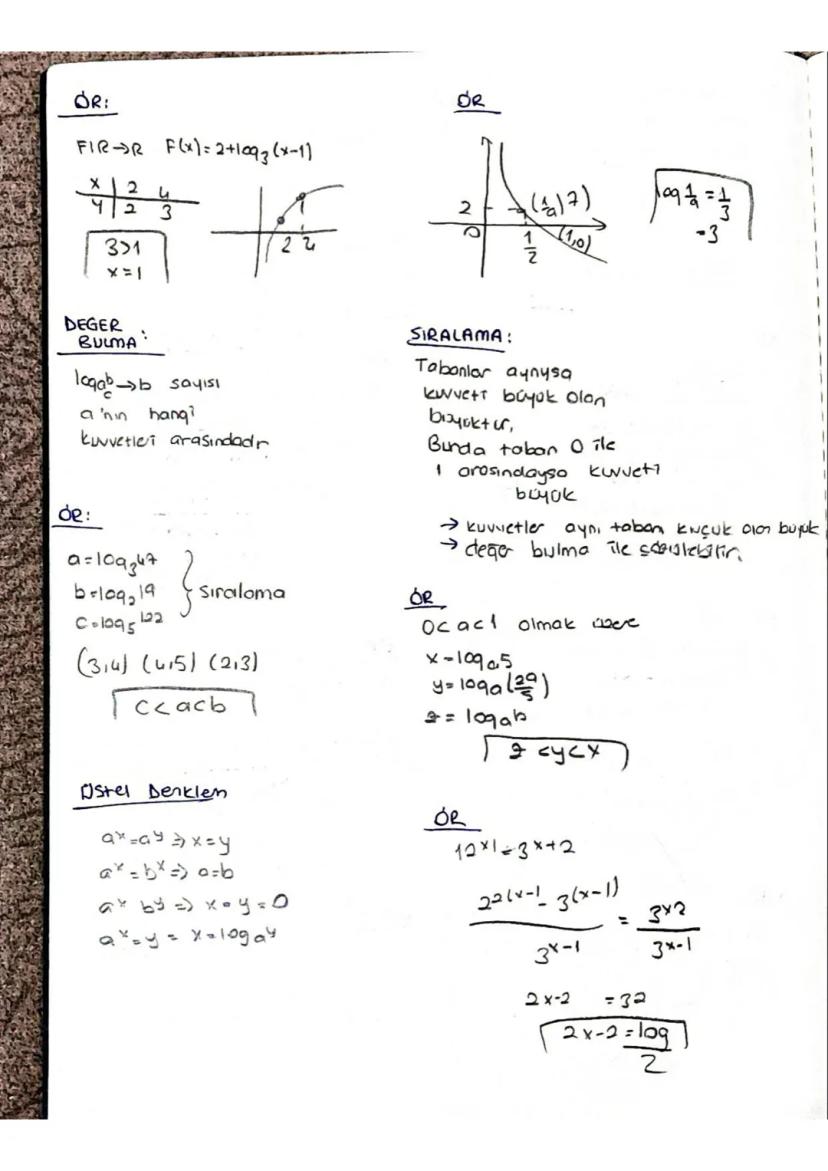 ÖR:
F:R→R F(x)=2+log₃(x-1)
x | 2 4
y | 2 3
3>1
x=1
2 4
DEĞER
BULMA:
logab→b sayısı
c
a'nın hangi
kuvvetleri arasındadır
ÖR:
a=log₃47
b=log₂19
c=log₅122
sıralama
(3,4) (4,5) (2,3)
c<a<b
Üstel Denklem
aˣ=aʸ⇒x=y
aˣ=bˣ⇒a=b
aˣ bʸ⇒x=y=0
aˣ=y = x=logaʸ
ÖR
2
0
1/2
(1,0)
log 1/a = 1/3
=3
SIRALAMA:
Tabanlar aynıysa
kuvveti büyük olan
büyüktür,
Burda taban 0 ile
1 arasındaysa kuvveti
büyük
→ kuvvetler aynı taban küçük olan büyük
→ değer bulma ile
ÖR
0<a<1 olmak üzere
x=loga5
y=loga(29/5)
z=loga6
z<y<x
ÖR
12ˣ¹=3ˣ+2
2²⁽ˣ⁻¹- 3⁽ˣ⁻¹⁾ / 3ˣ⁻¹ = 3ˣ2 / 3ˣ⁻¹
2x-2 =32
2x-2=log
2